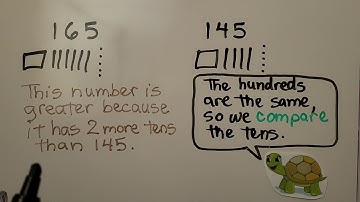 165
This number is
greater because
it has 2 more tens
than 145.
145
The hundreds
are the same,
so we compare
the tens.